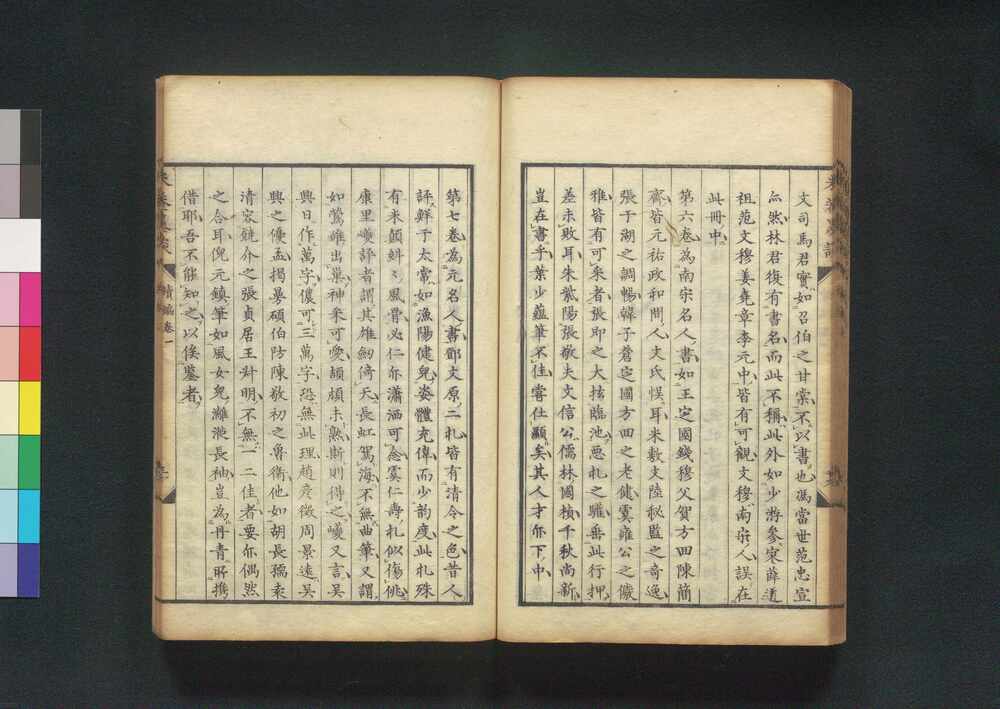 文司馬君實如召伯之甘棠不以書也馮當世范忠宣
亦然林君復有書名而此不稱此外如少游參寥薛道
祖范文穆姜堯章李元中皆有可觀文穆南宋人誤在
此冊中
第六卷為南宋名人書如王定國錢穆父賀方回陳簡
齋皆元祐政和間人丈氏悞耳米敷文陸秘監之奇逸
張于湖之調暢韓子蒼定國方回之老健虞雍公之儼
雅皆有可采者張即之大㧡臨池惡札之雕垂此行押
差未敗耳朱紫陽張敬夫文信公儒林國楨千秋尚新
豈在書乎葉少蘊筆不佳嘗仕顯矣其人才亦下中
第七卷為元名人書鄧文原二札皆有清令之色昔人
評鮮于太常如漁陽健兒姿體充偉而少韵度此札殊
有米顛蚪〻風費必仁亦瀟洒可念虞仁壽札似傷佻
康里巙評者謂其雄劒倚天長虹駕海不無曲筆又謂
如鶯雛出巢神采可愛頡頏未熟斯則得之巙又言吳
興日作萬字儂可三萬字恐無此理趙彥徵周景遠吳
興之優孟揭曼碩伯防陳敬初之魯衛他如胡長孺柰
清容饒介之張貞居王對明不無一二佳者要亦偶然
之合耳倪元鎮筆如風女兒濰漇長袖豈為丹青所携
借耶吾不能知之以俟鑒者
續編卷一